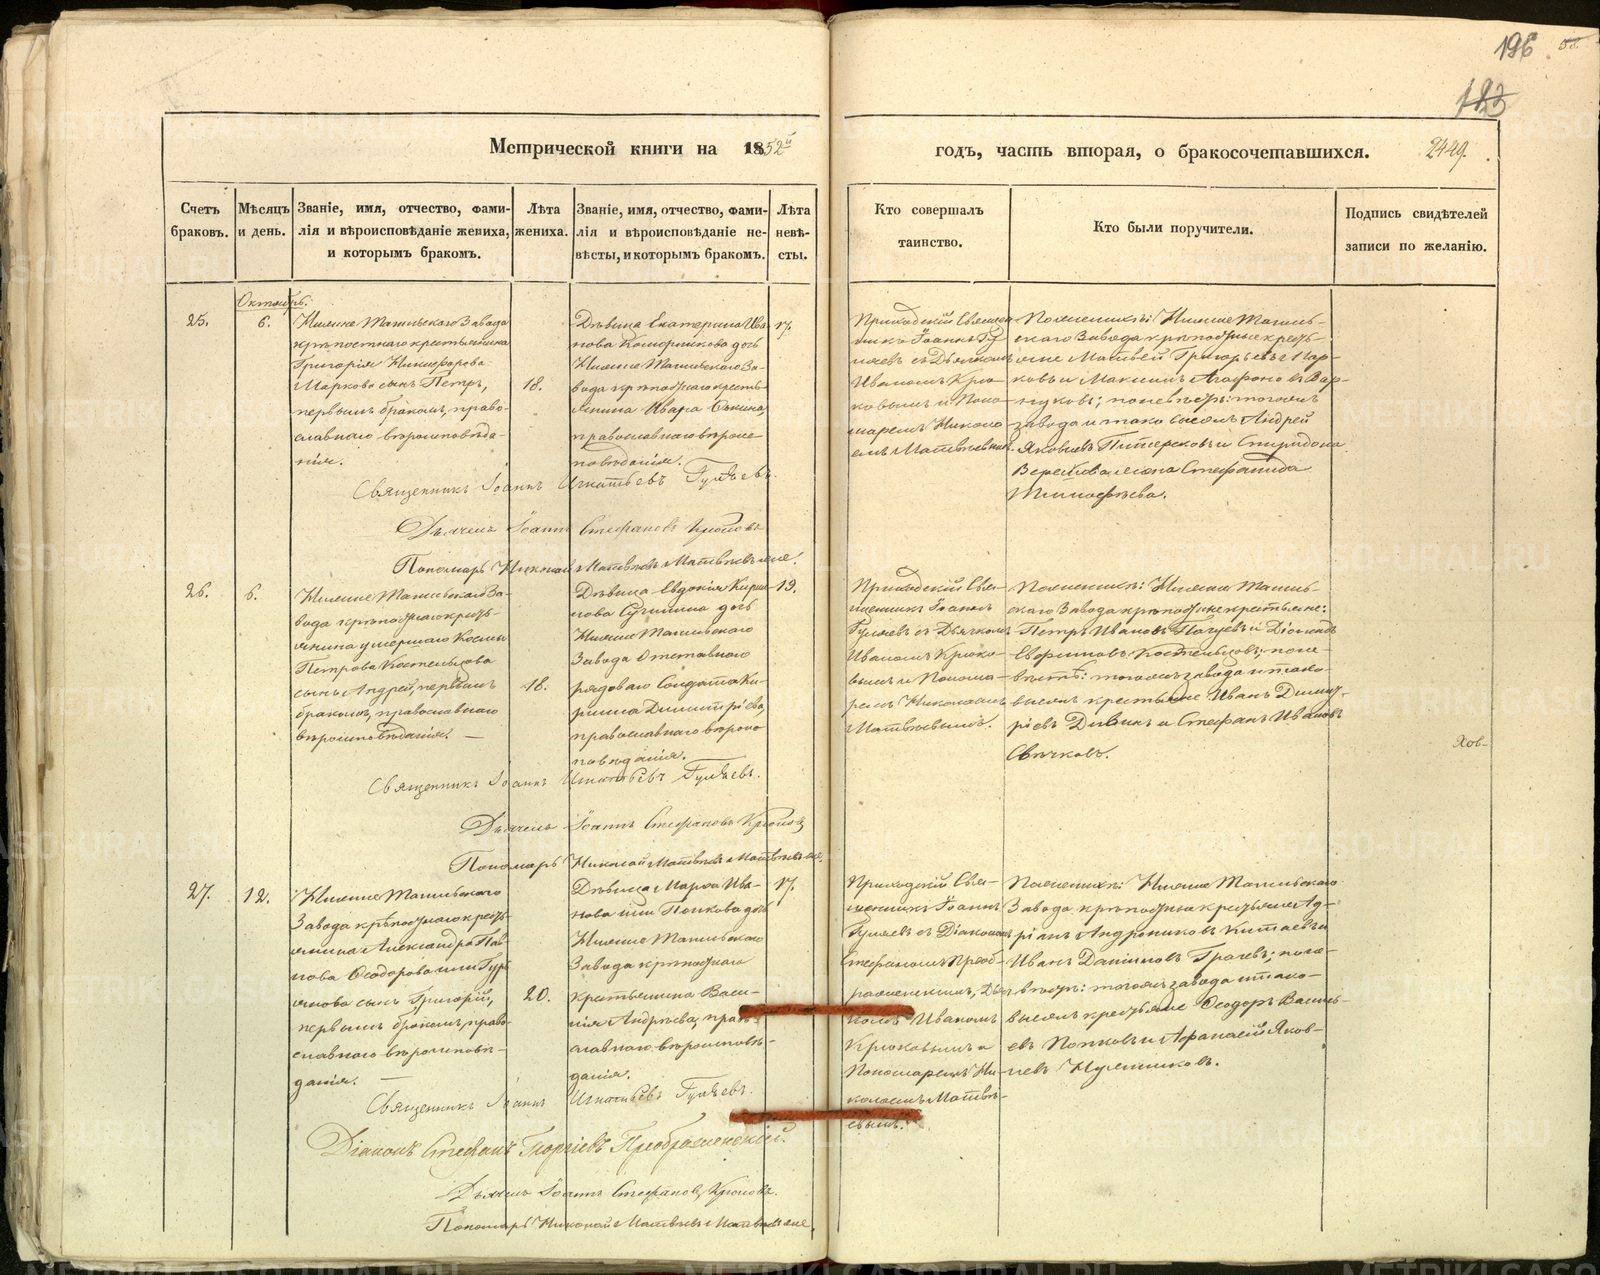 196
123
Метрической книги на 1852й
годъ, часть вторая, о бракосочетавшихся.
2449.
Счетъ браковъ.
Мѣсяцъ и день.
Званіе, имя, отчество, фами-
лія и вѣроисповѣданіе жениха,
и которымъ бракомъ.
Лѣта
жениха.
Званіе, имя, отчество, фами-
лія и вѣроисповѣданіе не-
вѣсты, и которымъ бракомъ.
Лѣта
невѣ-
сты.
Кто совершалъ
таинство.
Кто были поручители.
Подпись свидѣтелей
записи по желанію.
Октябрь.
25.
6.
Нижне Тагильскаго Завода
крѣпостнаго крестьянина
Григорія Никифорова
Маркова сынъ Петръ,
первымъ бракомъ, право-
славнаго вѣроисповѣда-
нія.
18.
Дѣвица Екатерина Ива-
нова дочь
Нижне Тагильскаго За-
вода крѣпостнаго кресть-
янина Ивана
православнаго вѣроис-
повѣданія.
17.
Приходскій Священ-
никъ Іоаннъ Гу-
ляевъ съ Дьячкомъ
Иваномъ Крю-
ковымъ и Поно-
маремъ Никола-
емъ Матвѣевымъ
По женихѣ: Нижне Тагиль-
скаго Завода крѣпостные кресть-
яне Матвей Григорьевъ Мар-
ковъ и Максимъ Агафоновъ
по невѣстѣ: тогожъ
завода и такожъ Андрей
Яковлевъ и Спиридона
жена Стефанида
Тимофѣева.
Священникъ Іоаннъ Игнатьевъ Гуляевъ.
Дьячекъ Іоаннъ Стефановъ Крюковъ
Пономарь Николай Матвѣевъ
26.
6.
Нижне Тагильскаго За-
вода крѣпостнаго кресть-
янина умершаго Космы
Петрова Костенцова
сынъ Андрей, первымъ
бракомъ, православнаго
вѣроисповѣданія.
18.
Дѣвица Евдокія Кирил-
лова дочь
Нижне Тагильскаго
Завода Отставнаго
рядоваго Солдата Ки-
рилла Димитріева,
православнаго вѣроис-
повѣданія.
19.
Приходскій Свя-
щенникъ Іоаннъ
Гуляевъ съ Дьячкомъ
Иваномъ Крюко-
вымъ и Понома-
ремъ Николаемъ
Матвѣевымъ.
По женихѣ: Нижне Тагиль-
скаго Завода крѣпостные крестьяне:
Петръ Ивановъ и Діомидъ
Костенцовъ; по не-
вѣстѣ: тогожъ завода и тако-
выежъ крестьяне Иванъ Димит-
ріевъ и Стефанъ Ивановъ
Свѣчковъ.
Священникъ Іоаннъ Игнатьевъ Гуляевъ.
Дьячекъ Іоаннъ Стефановъ Крюковъ
Пономарь Николай Матвѣевъ
27.
12.
Нижне Тагильскаго
Завода крѣпостнаго кресть-
янина Александра Пав-
лова Ѳеодорова или
сынъ Григорій,
первымъ бракомъ, право-
славнаго вѣроисповѣ-
данія.
20.
Дѣвица Марѳа Ива-
нова или Попкова дочь
Нижне Тагильскаго
Завода крѣпостнаго
крестьянина Васи-
лія Андреева, право-
славнаго вѣроисповѣ-
данія.
17.
Приходскій Свя-
щенникъ Іоаннъ
Гуляевъ съ Діакономъ
Стефаномъ Преоб-
раженскимъ, Дья-
комъ Иваномъ
Крюковымъ и
Пономаремъ Ни-
колаемъ Матвѣ-
евымъ.
По женихѣ: Нижне Тагильскаго
Завода крѣпостные крестьяне Ад-
ріанъ Андрониковъ Китаевъ и
Иванъ Даниловъ Грачевъ; по не-
вѣстѣ: тогожъ завода и тако-
выежъ крестьяне Ѳеодоръ Василь-
евъ Попковъ и Аѳанасій Яков-
левъ
Священникъ Іоаннъ Игнатьевъ Гуляевъ.
Діаконъ Стефанъ Георгіевъ Преображенскій.
Дьячекъ Іоаннъ Стефановъ Крюковъ.
Пономарь Николай Матвѣевъ